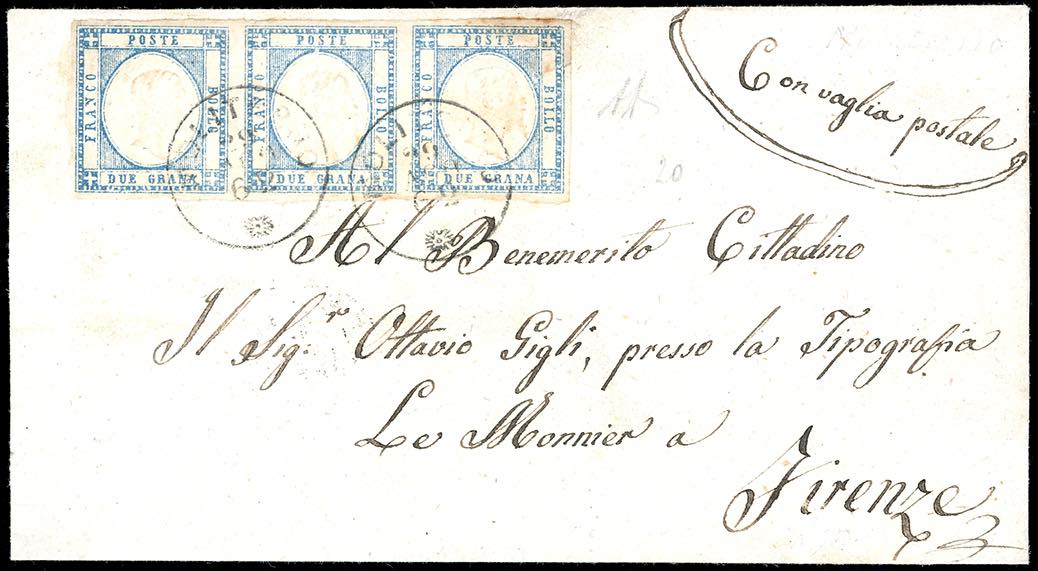 POSTE POSTE POSTE
FRANCO BOLLO FRANCO BOLLO FRANCO BOLLO
DUE GRANA DUE GRANA DUE GRANA
Con vaglia postale
20
Al Benemerito Cittadino
Il Sig.r Ottavio Gigli, presso la Tipografia
Le Monnier a
Firenze